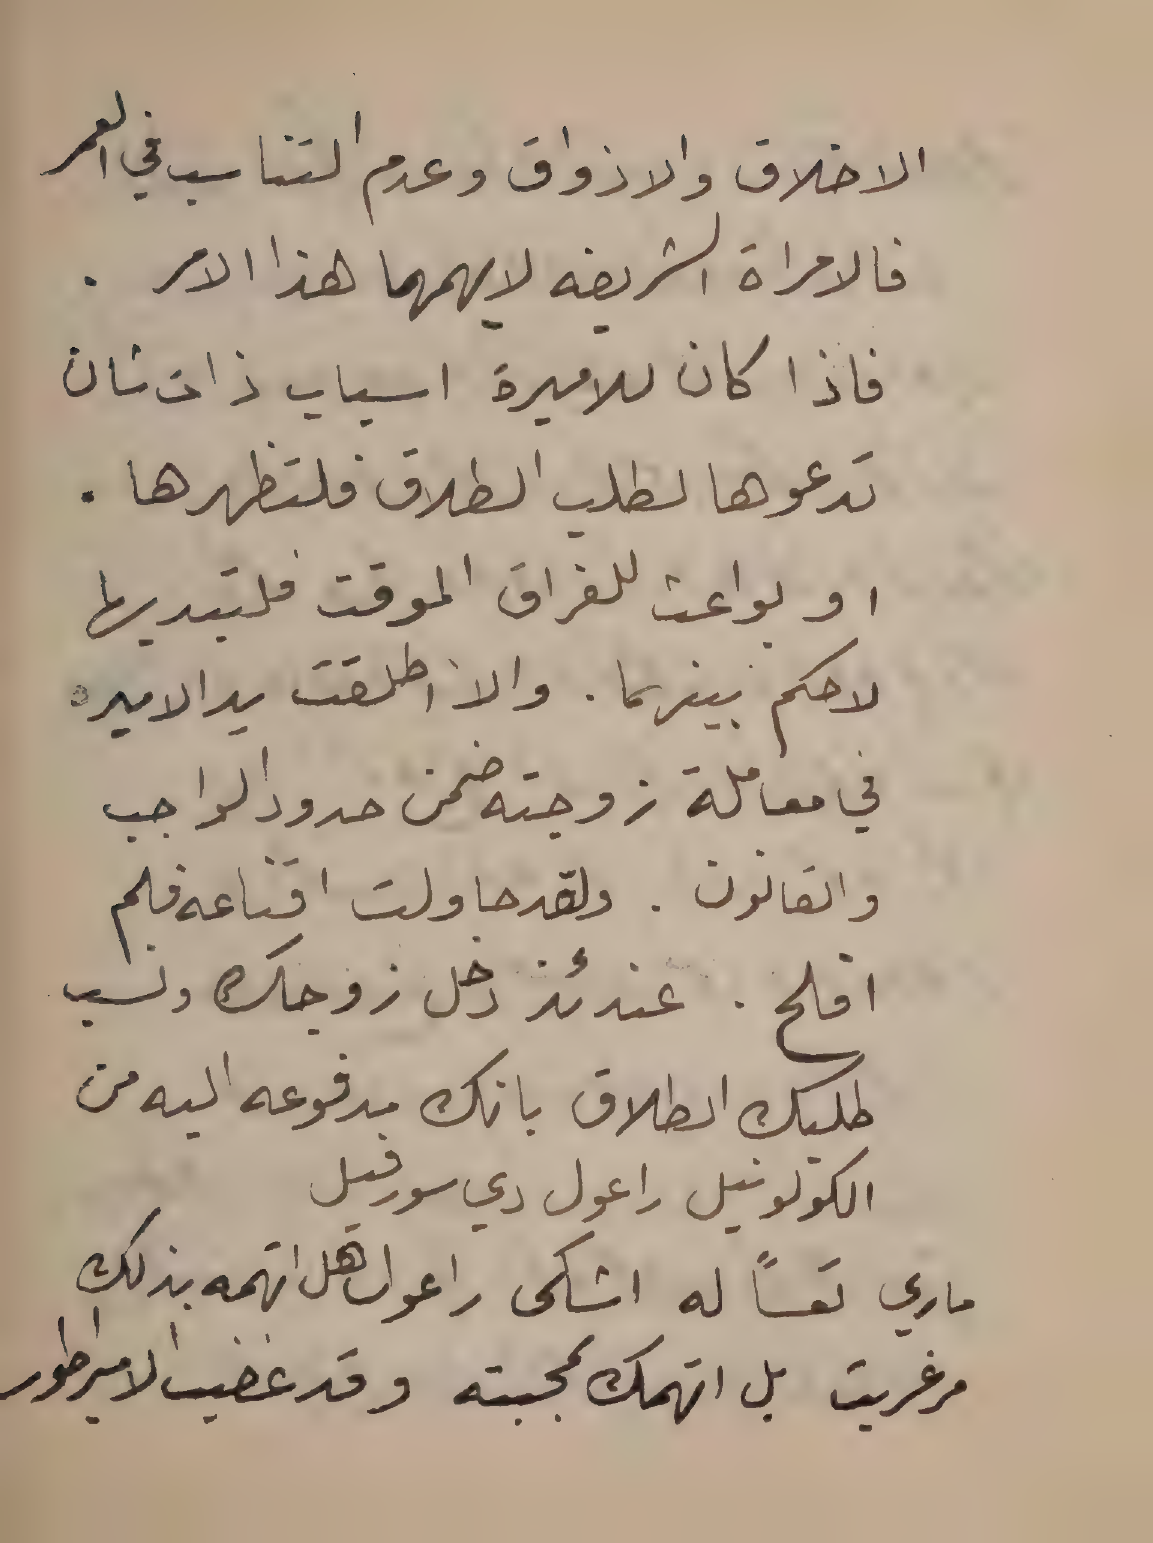 الاخلاق والاذواق وعدم التناسب في العمر
فالامراة الشريفه لايهمها هذا الامر .
فاذا كان للاميرة اسباب ذات شان
تدعوها لطلب الطلاق فلتظهرها .
او بواعث للفراق الموقت فلتبديها
لاحكم بينهما . والا اطلقت يد الاميره
في معاملة زوجته ضمن حدود الواجب
والقانون . ولقد حاولت اقناعه فلم
افلح . عندئذ دخل زوجك ونسب
طلبك الطلاق بانك مدفوعه اليه من
الكولونيل راعول دي سورفيل
ماري تعساً له اشكى راعول هل اتهمه بذلك
مرغريت بل اتهمك بمحبته وقد غضب الامبراطور